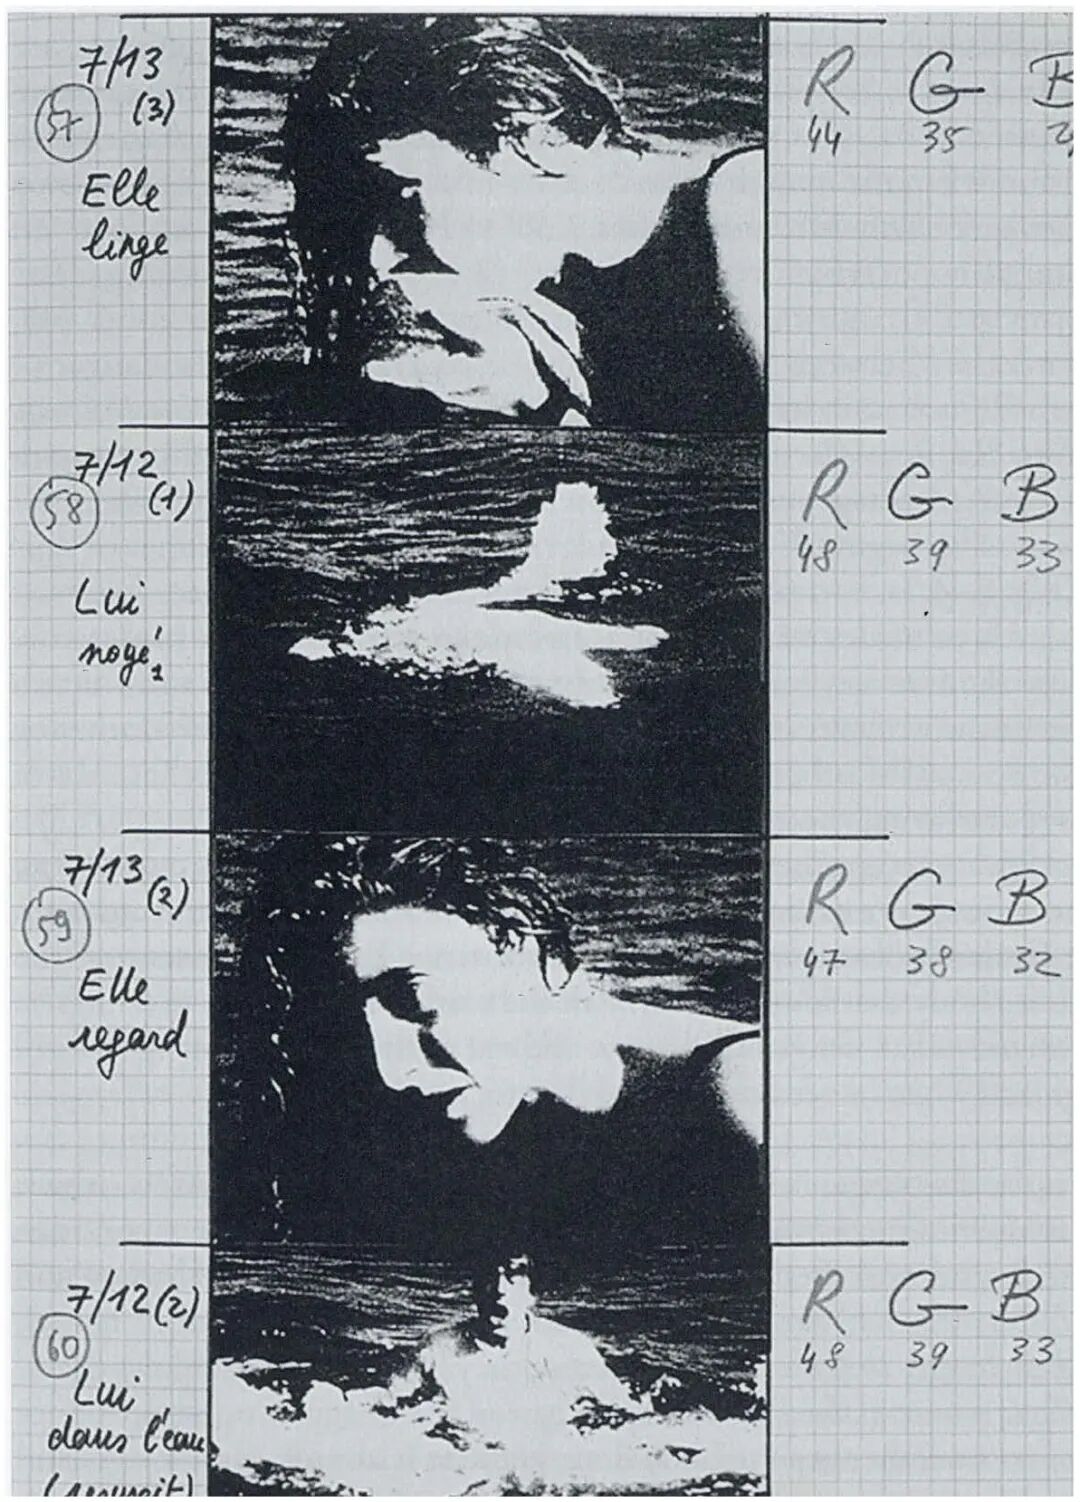 7/13
57 (3)
Elle
linge
R G B
44 35
7/12
58 (1)
Lui
noyé 1
R G B
48 39 33
7/13 (2)
59
Elle
regard
R G B
47 38 32
7/12 (2)
60
Lui
dans l'eau
R G B
48 39 33